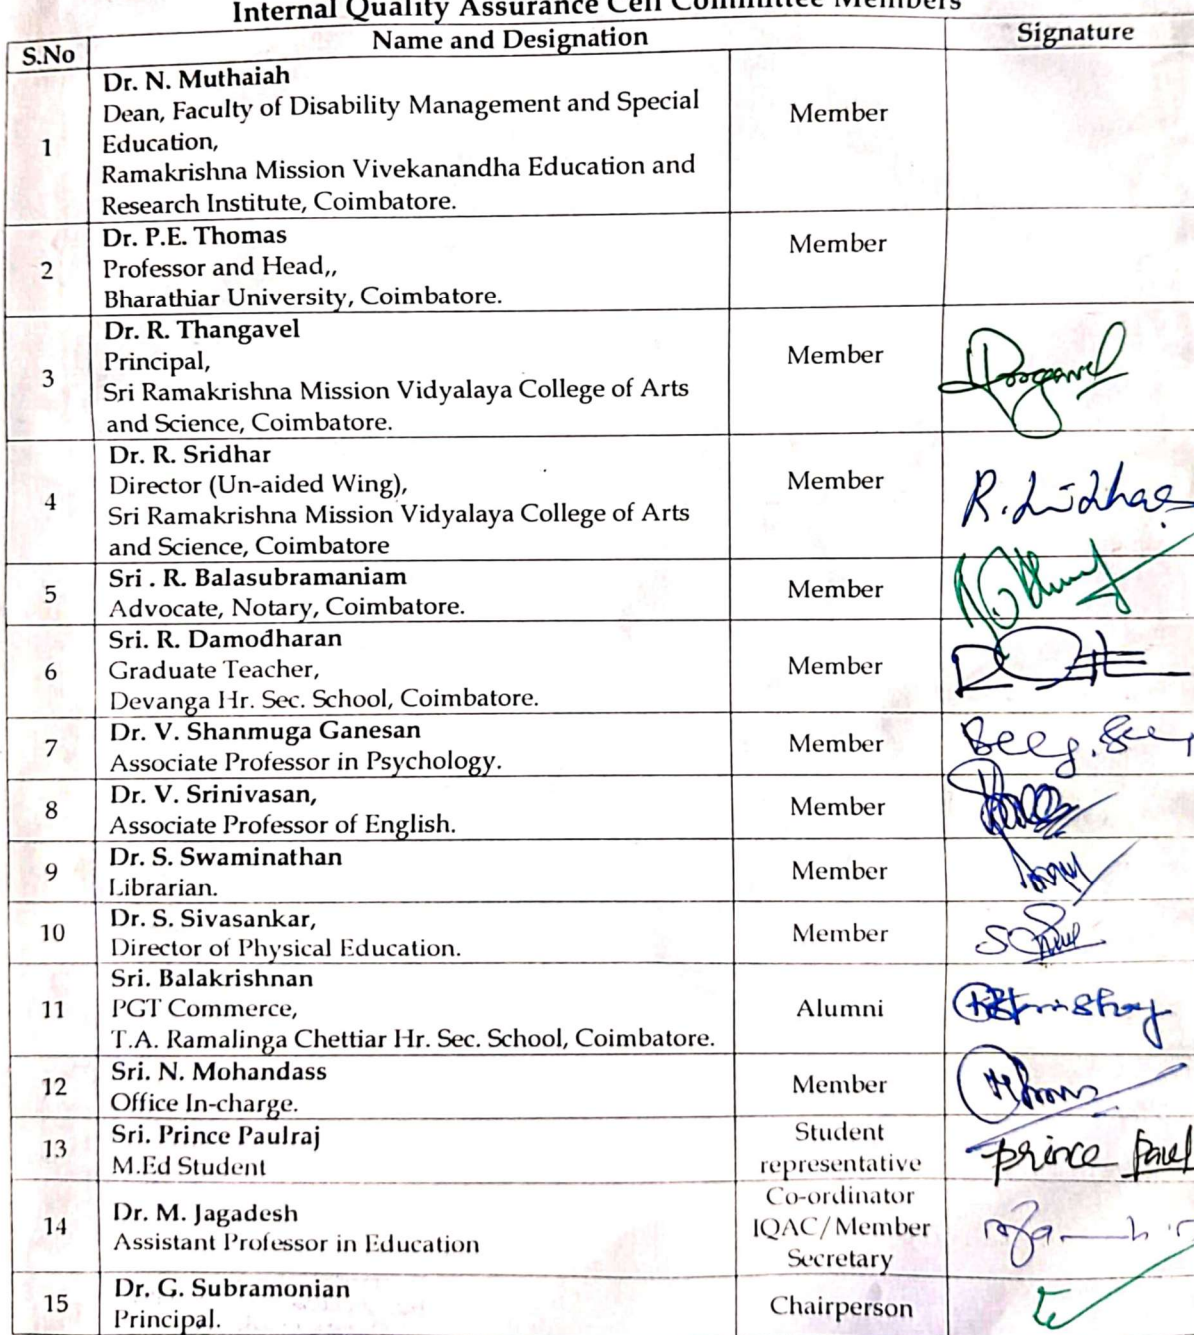 Internal Quality Assurance Cell Committee Members
S.No
Name and Designation
Signature
1
Dr. N. Muthaiah
Dean, Faculty of Disability Management and Special
Education,
Ramakrishna Mission Vivekanandha Education and
Research Institute, Coimbatore.
Member
2
Dr. P.E. Thomas
Professor and Head,,
Bharathiar University, Coimbatore.
Member
3
Dr. R. Thangavel
Principal,
Sri Ramakrishna Mission Vidyalaya College of Arts
and Science, Coimbatore.
Member
4
Dr. R. Sridhar
Director (Un-aided Wing),
Sri Ramakrishna Mission Vidyalaya College of Arts
and Science, Coimbatore
Member
5
Sri . R. Balasubramaniam
Advocate, Notary, Coimbatore.
Member
6
Sri. R. Damodharan
Graduate Teacher,
Devanga Hr. Sec. School, Coimbatore.
Member
7
Dr. V. Shanmuga Ganesan
Associate Professor in Psychology.
Member
8
Dr. V. Srinivasan,
Associate Professor of English.
Member
9
Dr. S. Swaminathan
Librarian.
Member
10
Dr. S. Sivasankar,
Director of Physical Education.
Member
11
Sri. Balakrishnan
PGT Commerce,
T.A. Ramalinga Chettiar Hr. Sec. School, Coimbatore.
Alumni
12
Sri. N. Mohandass
Office In-charge.
Member
13
Sri. Prince Paulraj
M.Ed Student
Student
representative
prince Paul
14
Dr. M. Jagadesh
Assistant Professor in Education
Co-ordinator
IQAC/Member
Secretary
15
Dr. G. Subramonian
Principal.
Chairperson